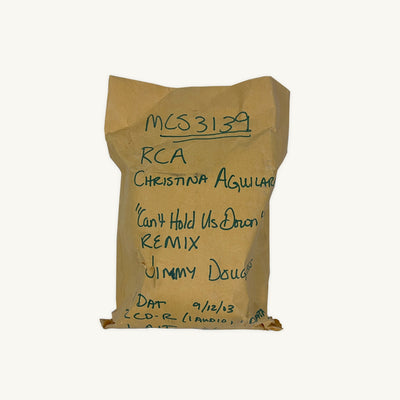 MCS3139
RCA
CHRISTINA AGUILAR
"Can't Hold Us Down"
REMIX
JIMMY DOUG
DAT 9/12/03
CD-R (1 AUDIO,